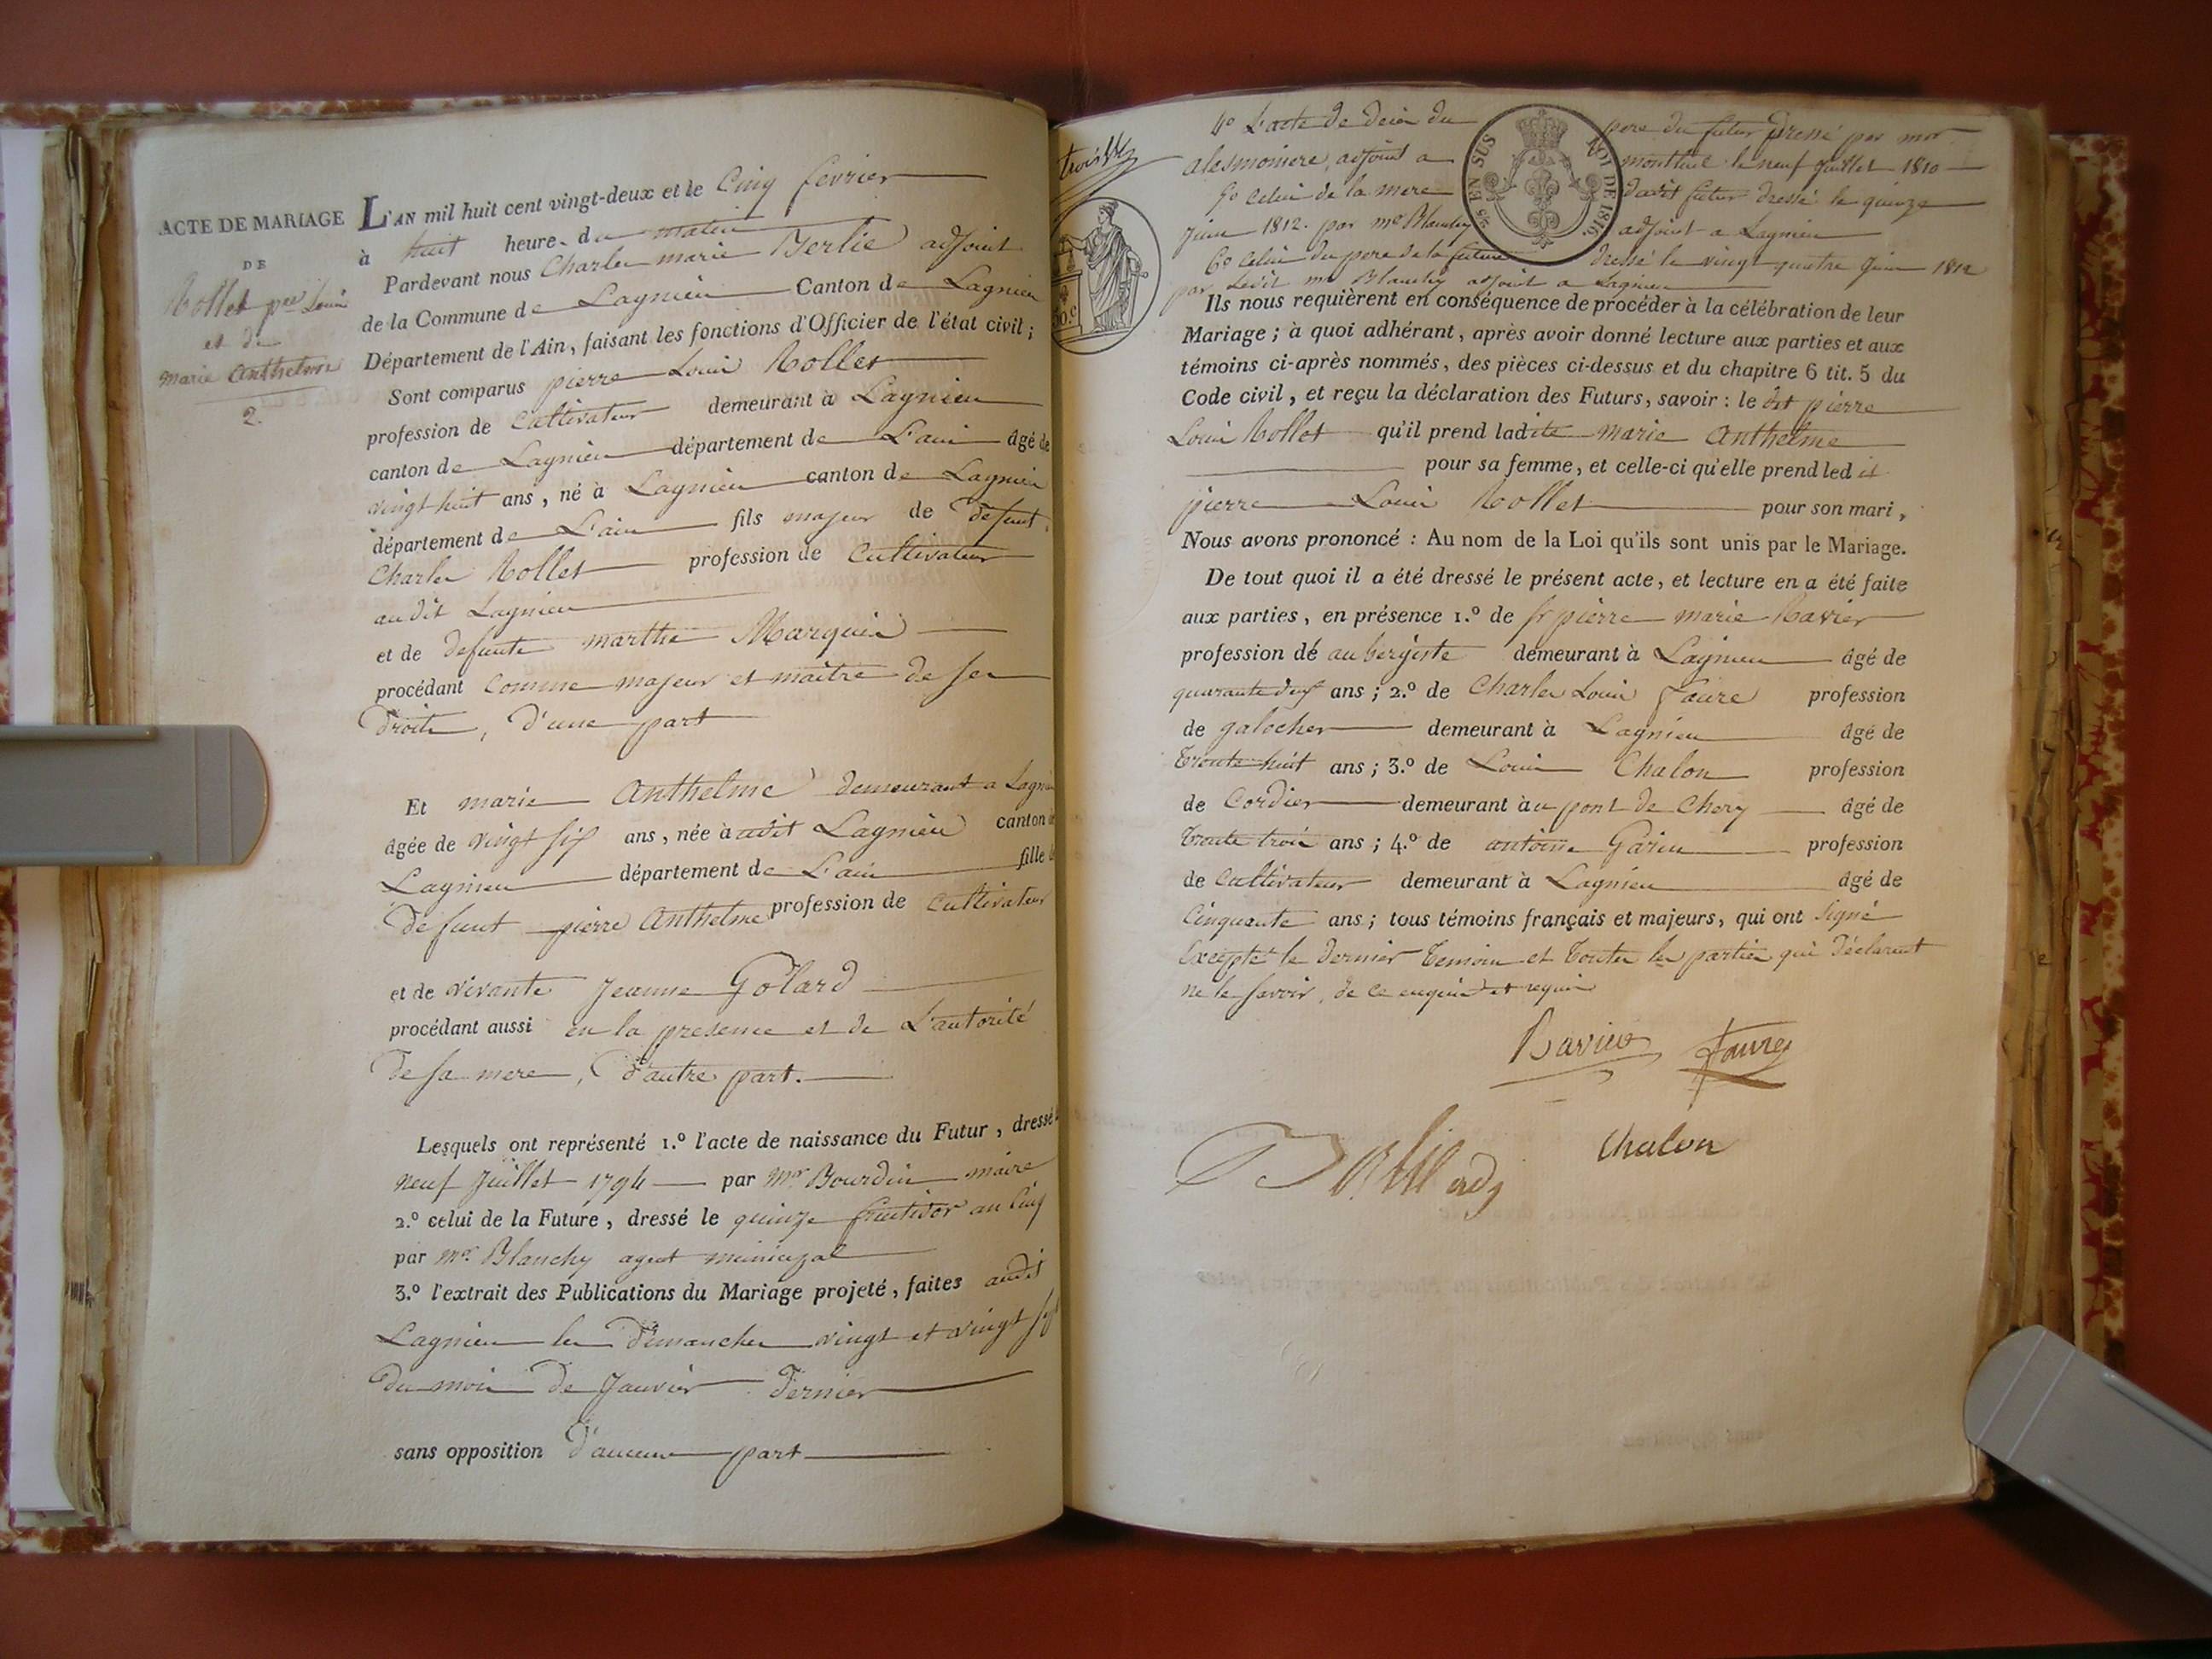 ACTE DE MARIAGE
DE
Rollet pre Louis
et de
marie Anthelme
2.
L'AN mil huit cent vingt-deux et le Cinq fevrier
à huit heure du matin
Pardevant nous Charles marie Berlie adjoint
de la Commune de Lagnieu Canton de Lagnieu
Département de l'Ain, faisant les fonctions d'Officier de l'état civil ;
Sont comparus pierre Louis Rollet
profession de Cultivateur demeurant à Lagnieu
canton de Lagnieu département de L'ain âgé de
vingt huit ans, né à Lagnieu canton de Lagnieu
département de L'ain fils majeur de defunt
Charles Rollet profession de Cultivateur
audit Lagnieu
et de defunte marthe Marquis
procédant comme majeur et maitre de ses
Droits, D'une part
Et marie Anthelme demeurant a Lagnieu
âgée de vingt six ans, née à audit Lagnieu canton de
Lagnieu département de L'ain fille de
Defunt pierre Anthelme profession de Cultivateur
et de vivante Jeanne Golard
procédant aussi en la presence et de L'autorité
De sa mere, D'autre part.
Lesquels ont représenté 1.º l'acte de naissance du Futur, dressé le
neuf Juillet 1794 par Mr Bourdin maire
2.º celui de la Future, dressé le quinze fructidor an Cinq
par Mr Blanchy agent municipal
3.º l'extrait des Publications du Mariage projeté, faites audit
Lagnieu les Dimanches vingt et vingt sept
Du mois De Janvier Dernier
sans opposition D'aucune part
4º L'acte de deces du pere du futur Dressé par mr
alesmoniere, adjoint a montluel le neuf Juillet 1810
5º Celui de la mere dudit futur dressé le quinze
juin 1812. par mr Blanchy adjoint a Lagnieu
6º Celui du pere de la future dressé le vingt quatre Juin 1812
par Ledit mr Blanchy adjoint a Lagnieu
EN SUS
LOI DE 1816
Ils nous requièrent en conséquence de procéder à la célébration de leur
Mariage ; à quoi adhérant, après avoir donné lecture aux parties et aux
témoins ci-après nommés, des pièces ci-dessus et du chapitre 6 tit. 5 du
Code civil, et reçu la déclaration des Futurs, savoir : le dit pierre
Louis Rollet qu'il prend ladite marie Anthelme
pour sa femme, et celle-ci qu'elle prend led it
pierre Louis Rollet pour son mari,
Nous avons prononcé : Au nom de la Loi qu'ils sont unis par le Mariage.
De tout quoi il a été dressé le présent acte, et lecture en a été faite
aux parties, en présence 1.º de sr pierre marie Ravier
profession de aubergiste demeurant à Lagnieu âgé de
quarante deux ans ; 2.º de Charles Louis Faure profession
de galocher demeurant à Lagnieu âgé de
Trente huit ans ; 3.º de Louis Chalon profession
de Cordier demeurant à au pont de Chery âgé de
Trente trois ans ; 4.º de antoine Garin profession
de Cultivateur demeurant à Lagnieu âgé de
Cinquante ans ; tous témoins français et majeurs, qui ont signé
Excepté le dernier Temoin et Toutes les parties qui Déclarent
ne le savoir, de ce enquis et requis
Ravier Faure
Chalon